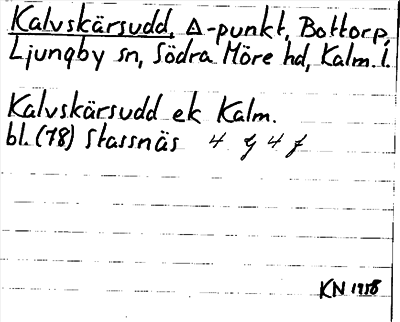 Kalvskärsudd, Δ-punkt, Bottorp,
Ljungby sn, Södra Möre hd, Kalm. l.
Kalvskärsudd ek Kalm.
bl. (78) Stassnäs 4 G 4 f
KN 1958